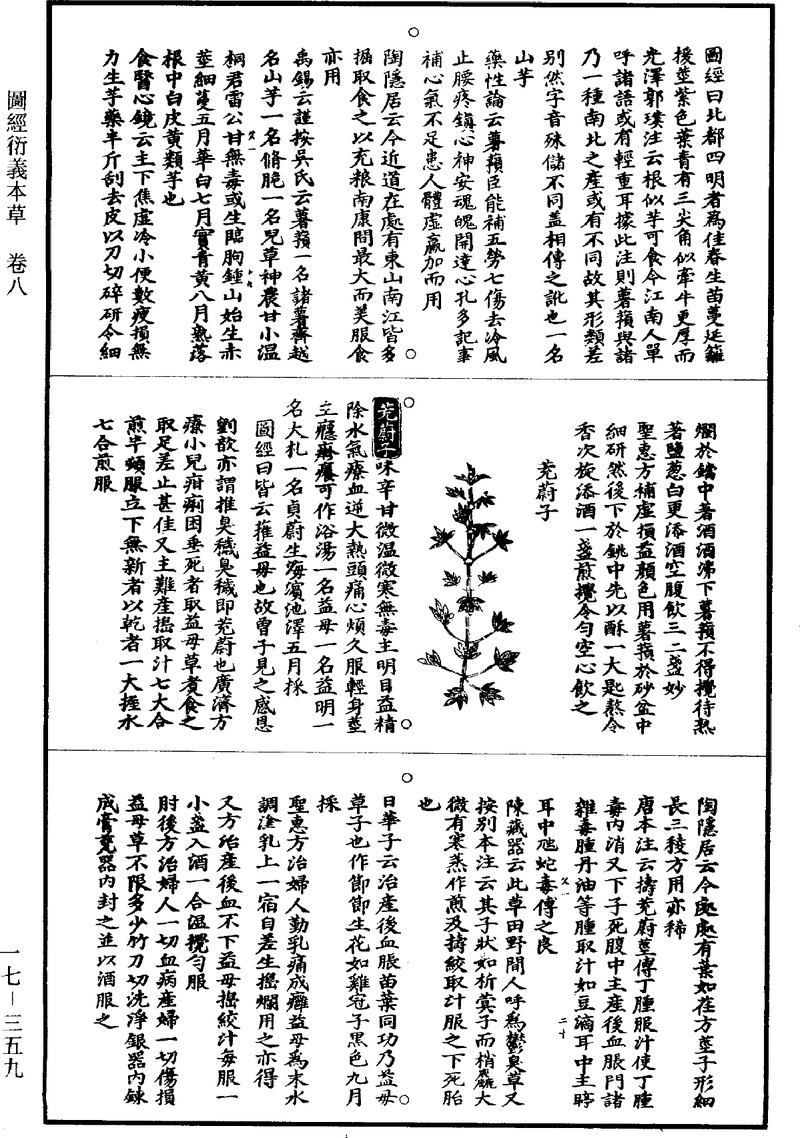 圖經衍義本草 卷八
一七-三五九
圖經曰北都四明者為佳春生苗蔓延籬
援莖紫色葉青有三尖角似牽牛更厚而
光澤郭璞注云根似芋可食今江南人單
呼諸語或有輕重耳據此注則薯蕷與諸
乃一種南北之產或有不同故其形類差
別然字音殊儲不同盖相傳之訛也一名
山芋
藥性論云薯蕷臣能補五勞七傷去冷風
止腰疼鎮心神安魂魄開達心孔多記事
補心氣不足患人體虛羸加而用
陶隱居云今近道在處有東山南江皆多
掘取食之以充粮南康間最大而美服食
亦用
禹錫云謹按吳氏云薯蕷一名諸薯齊越
名山芋一名脩脆一名兒草神農甘小溫
桐君雷公甘無毒或生臨朐鍾山始生赤
莖細蔓五月華白七月實青黃八月熟落
根中白皮黃類芋也
食醫心鏡云主下焦虛冷小便數瘦損無
力生芋藥半斤刮去皮以刀切碎研令細
爛於鐺中著酒酒沸下薯蕷不得攪待熟
著鹽葱白更添酒空腹飲三二盞妙
聖惠方補虛損益顏色用薯蕷於砂盆中
細研然後下於銚中先以酥一大匙熬令
香次旋添酒一盞煎攪令勻空心飲之
茺蔚子
茺蔚子味辛甘微溫微寒無毒主明目益精
除水氣療血逆大熱頭痛心煩久服輕身莖
主癮𤺋癢可作浴湯一名益母一名益明一
名大札一名貞蔚生海濱池澤五月採
圖經曰皆云蓷益母也故曾子見之感恩
劉歆亦謂蓷臭穢臭穢即茺蔚也廣濟方
療小兒疳痢困垂死者取益母草煮食之
取足差止甚佳又主難產搗取汁七大合
煎半頓服立下無新者以乾者一大握水
七合煎服
陶隱居云今處處有葉如荏方莖子形細
長三稜方用亦稀
唐本注云擣茺蔚莖傅丁腫服汁使丁腫
毒內消又下子死腹中主產後血脹悶諸
雜毒腫丹油等腫取汁如豆滴耳中主聤
耳中虺蛇毒傅之良
陳藏器云此草田野間人呼為鬱臭草又
按別本注云其子狀如菥蓂子而稍麄大
微有寒蒸作煎及擣絞取汁服之下死胎
也
日華子云治產後血脹苗葉同功乃益母
草子也作節節生花如雞冠子黑色九月
採
聖惠方治婦人勒乳痛成癰益母為末水
調塗乳上一宿自差生搗爛用之亦得
又方治產後血不下益母搗絞汁每服一
小盞入酒一合溫攪勻服
肘後方治婦人一切血病產婦一切傷損
益母草不限多少竹刀切洗淨銀器內鍊
成膏瓷器內封之並以酒服之